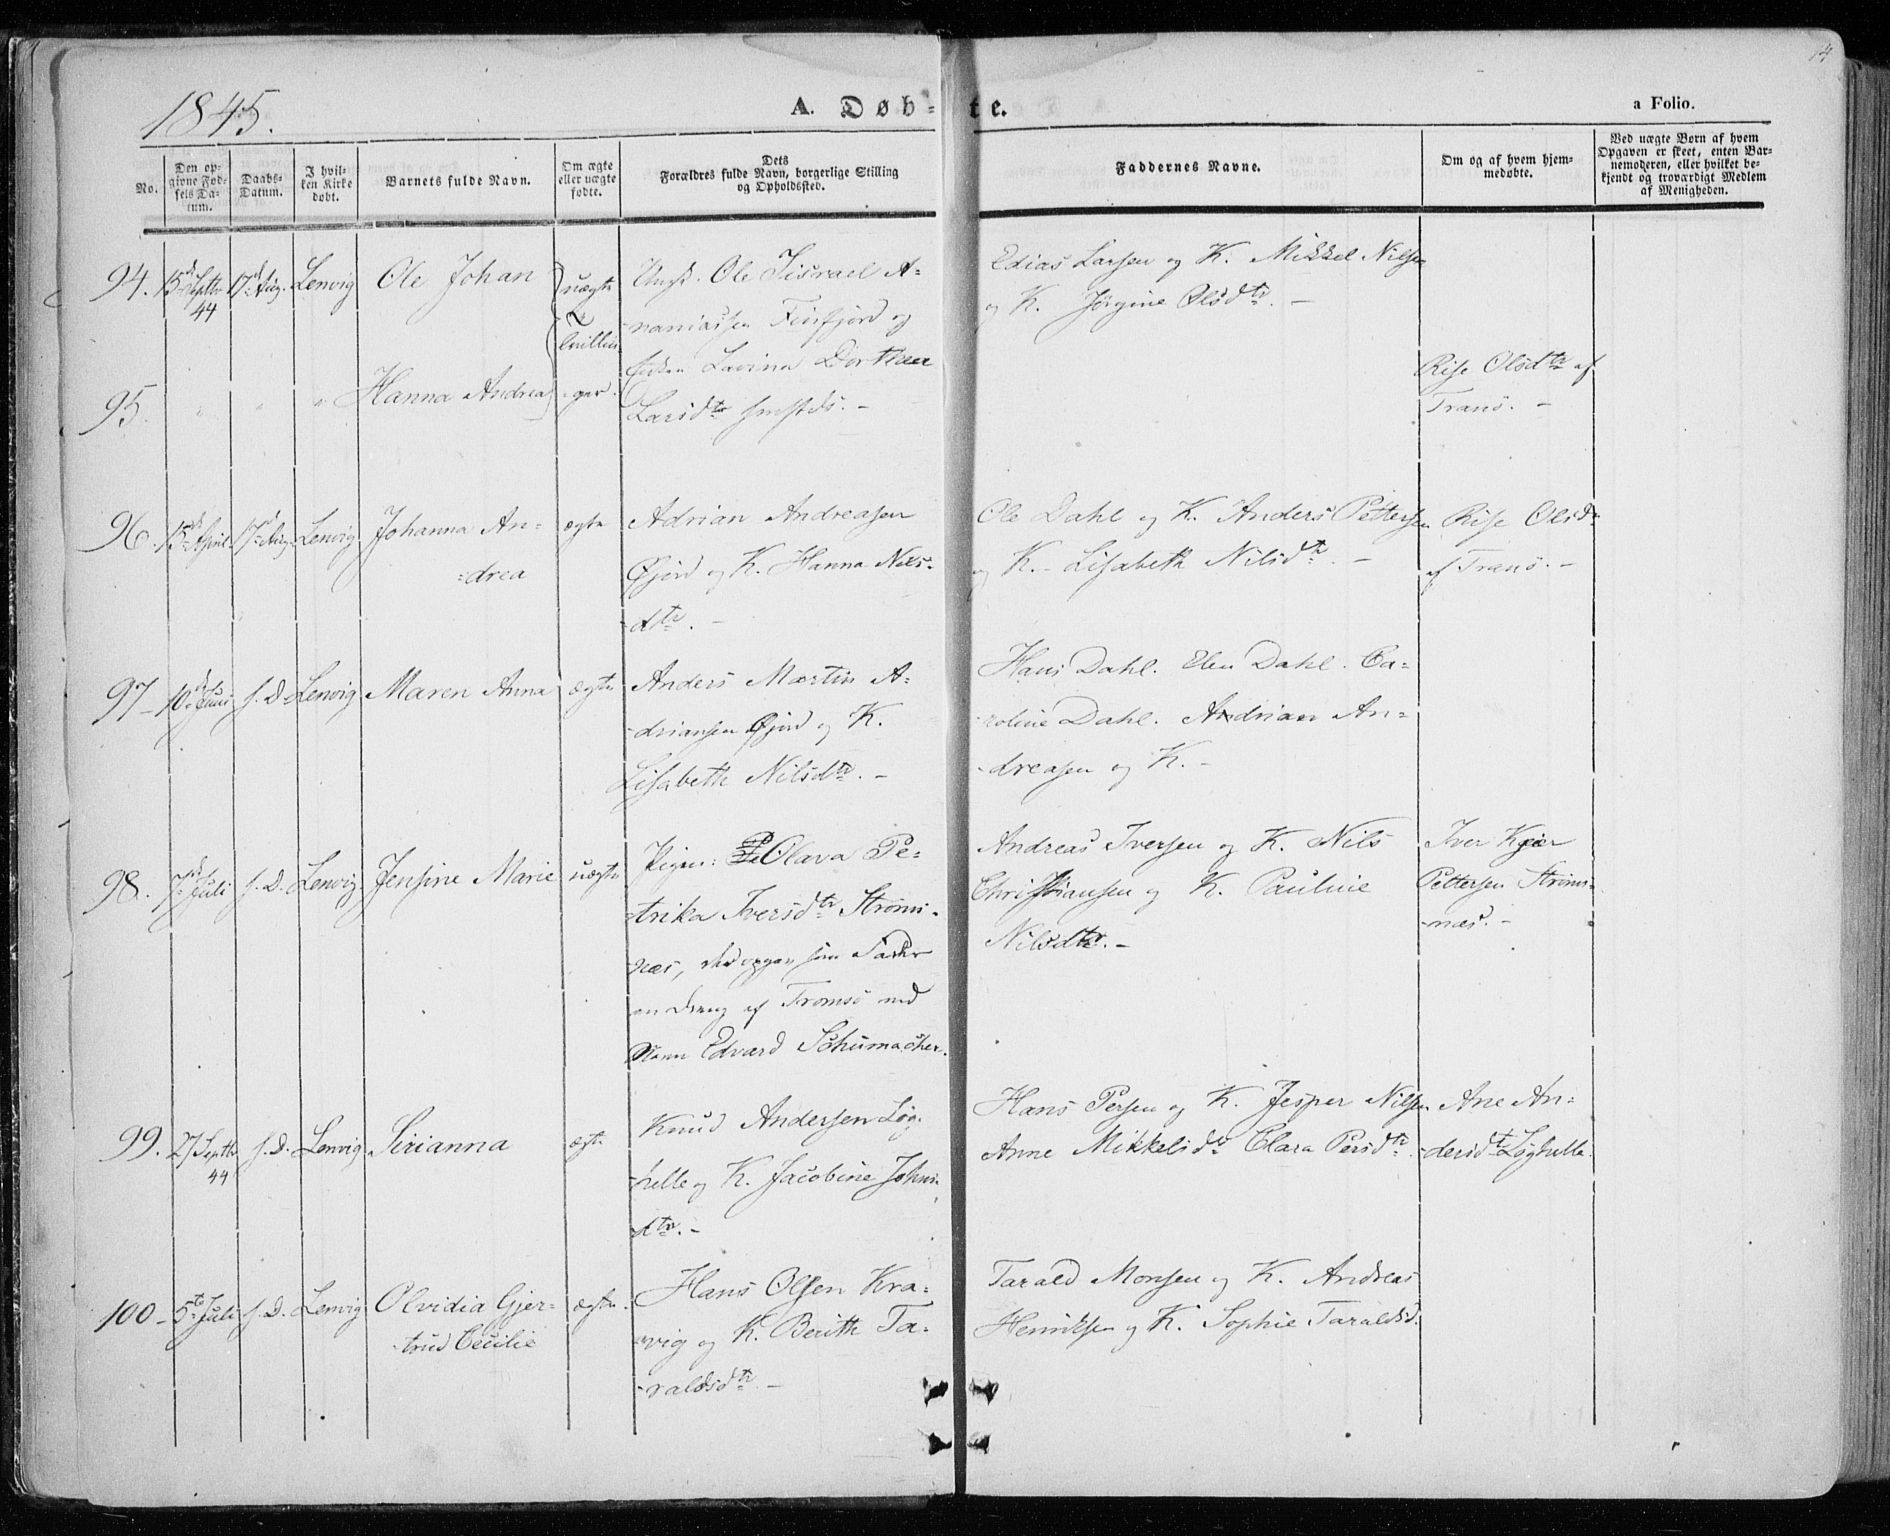 14
1845.
A. Døb-
te.
a Folio.
No.
Den op-
givne Fød-
sels Da-
tum.
Daabs-
Datum.
I hvil-
ken Kirke
døbt.
Barnets fulde Navn.
Om ægte
eller uægte
fødte.
Dets
Forældres fulde Navn, borgerlige Stilling
og Opholdssted.
Faddernes Navne.
Om og af hvem hjem-
medøbte.
Ved uægte Børn af hvem
Opgaven er skeet, enten Bar-
nemoderen, eller hvilket be-
kjendt og troværdigt Medlem
af Menigheden.
94. 15d Septbr 44 17d Aug. Lenvig Ole Johan uægte
Tvillin-
Ungk. Ole Jisrael A-
naniassen Finfjord og
Lavina Dorthea
Larsdtr
Edias Larsen og K. Mikkel Nilsen
og K. Jørgine Olsdtr. -
95. " " " Hanna Andrea -ger.
Rise Olsdtr af
Tranö. -
96. 15d April 17d Aug. Lenvig Johanna An-
=drea
ægte
Adrian Andreasen
Øjord og K. Hanna Nils-
dtr. -
Ole Dahl og K. Anders Pettersen
og K. - Lisabeth Nilsdtr. -
Rise Olsdtr
af Tranö. -
97- 10d Juni s. D. Lenvig Maren Anna ægte
Anders Martin A-
-driansen Øjord og K.
Lisabeth Nilsdtr. -
Hans Dahl. Elen Dahl. Ca-
-roline Dahl. Andrian An-
-dreasen og K. -
98. 7d Juli s. D. Lenvig Jensine Marie uægte
Pigen: Olava Pe-
-trika Iversdtr Strøms-
næs, som Fader
en Dreng af Tromsö ved
Navn Edvard Schumacher.
Andreas Iversen og K. Nils
Christiansen og K. Pauline
Nilsdtr. -
Iver Kjær
Pettersen Strøms-
-næs. -
99. 27 Septbr 44 s. D. Lenvig Sirianna ægte
Knud Andersen Løg-
-helle og K. Jacobine Johns-
dtr. -
Hans Persen og K. Jesper Nilsen
Anne Mikkelsdtr Clara Persdtr.
Ane An-
-dersdtr Løghelle.
100- 5te Juli s. D. Lenvig Olvidia Gjer-
-trud Cecilie
ægte.
Hans Olsen Kra-
-vig og K. Berithe Ta-
-raldsdtr. -
Tarald Monsen og K. Andreas
Henriksen og K. Sophie Taraldsd.